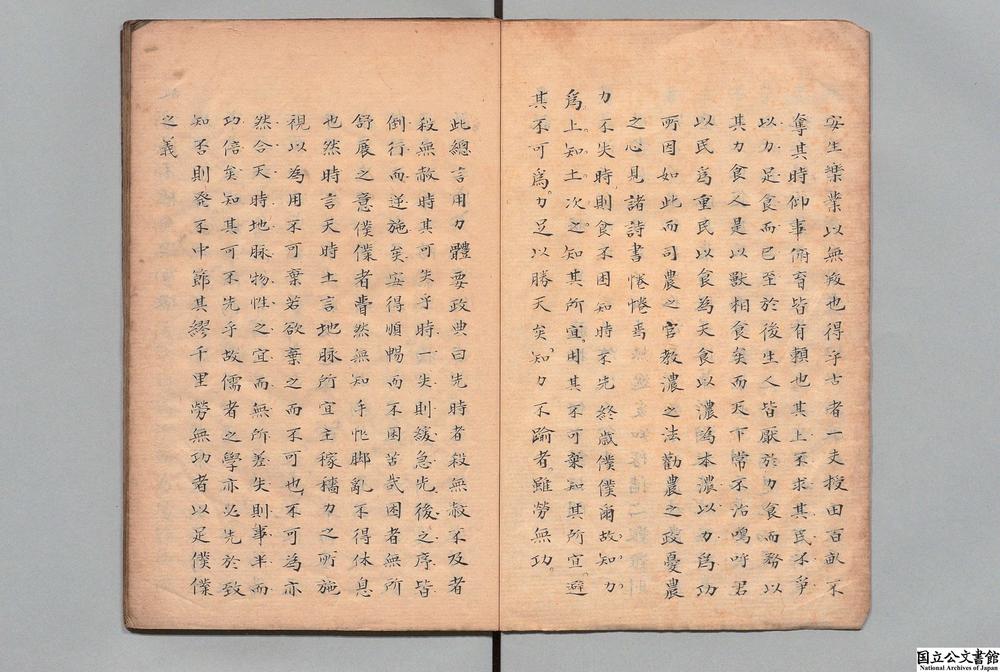 安生樂業以無也得乎古者一夫授田百畝不
奪其時仰事俯育皆有賴也其上不求其民不爭
以力足食而已至於後生人皆厭於力食而務以
其力食人是以獸相食矣而天下常不治嗚呼君
以民爲重民以食為天食以濃為本濃以力爲功
所因如此而司農之官教濃之法勸農之政憂農
之心見諸詩書惓惓焉
力不失時則食不困知時不先終歲僕僕爾故知力
爲上知土次之知其所宜用其不可棄知其所宜避
其不可爲力足以勝天矣知力不踰者雖勞無功
此總言用力體要政典曰先時者殺無赦不及者
殺無赦時其可失乎時一失則緩急先後之序皆
倒行而逆施矣安得順暢而不困苦哉困者無所
舒展之意僕僕者瞢然無知手忙脚亂不得休息
也然時言天時土言地脉所宜主稼穡力之所施
視以為用不可棄若欲棄之而不可也不可為亦
然合天時地脉物性之宜而無所差失則事半而
功倍矣知其可不先乎故儒者之學亦必先於致
知否則發不中節其繆千里勞無功者以足僕僕
之義
国立公文書館
National Archives of Japan